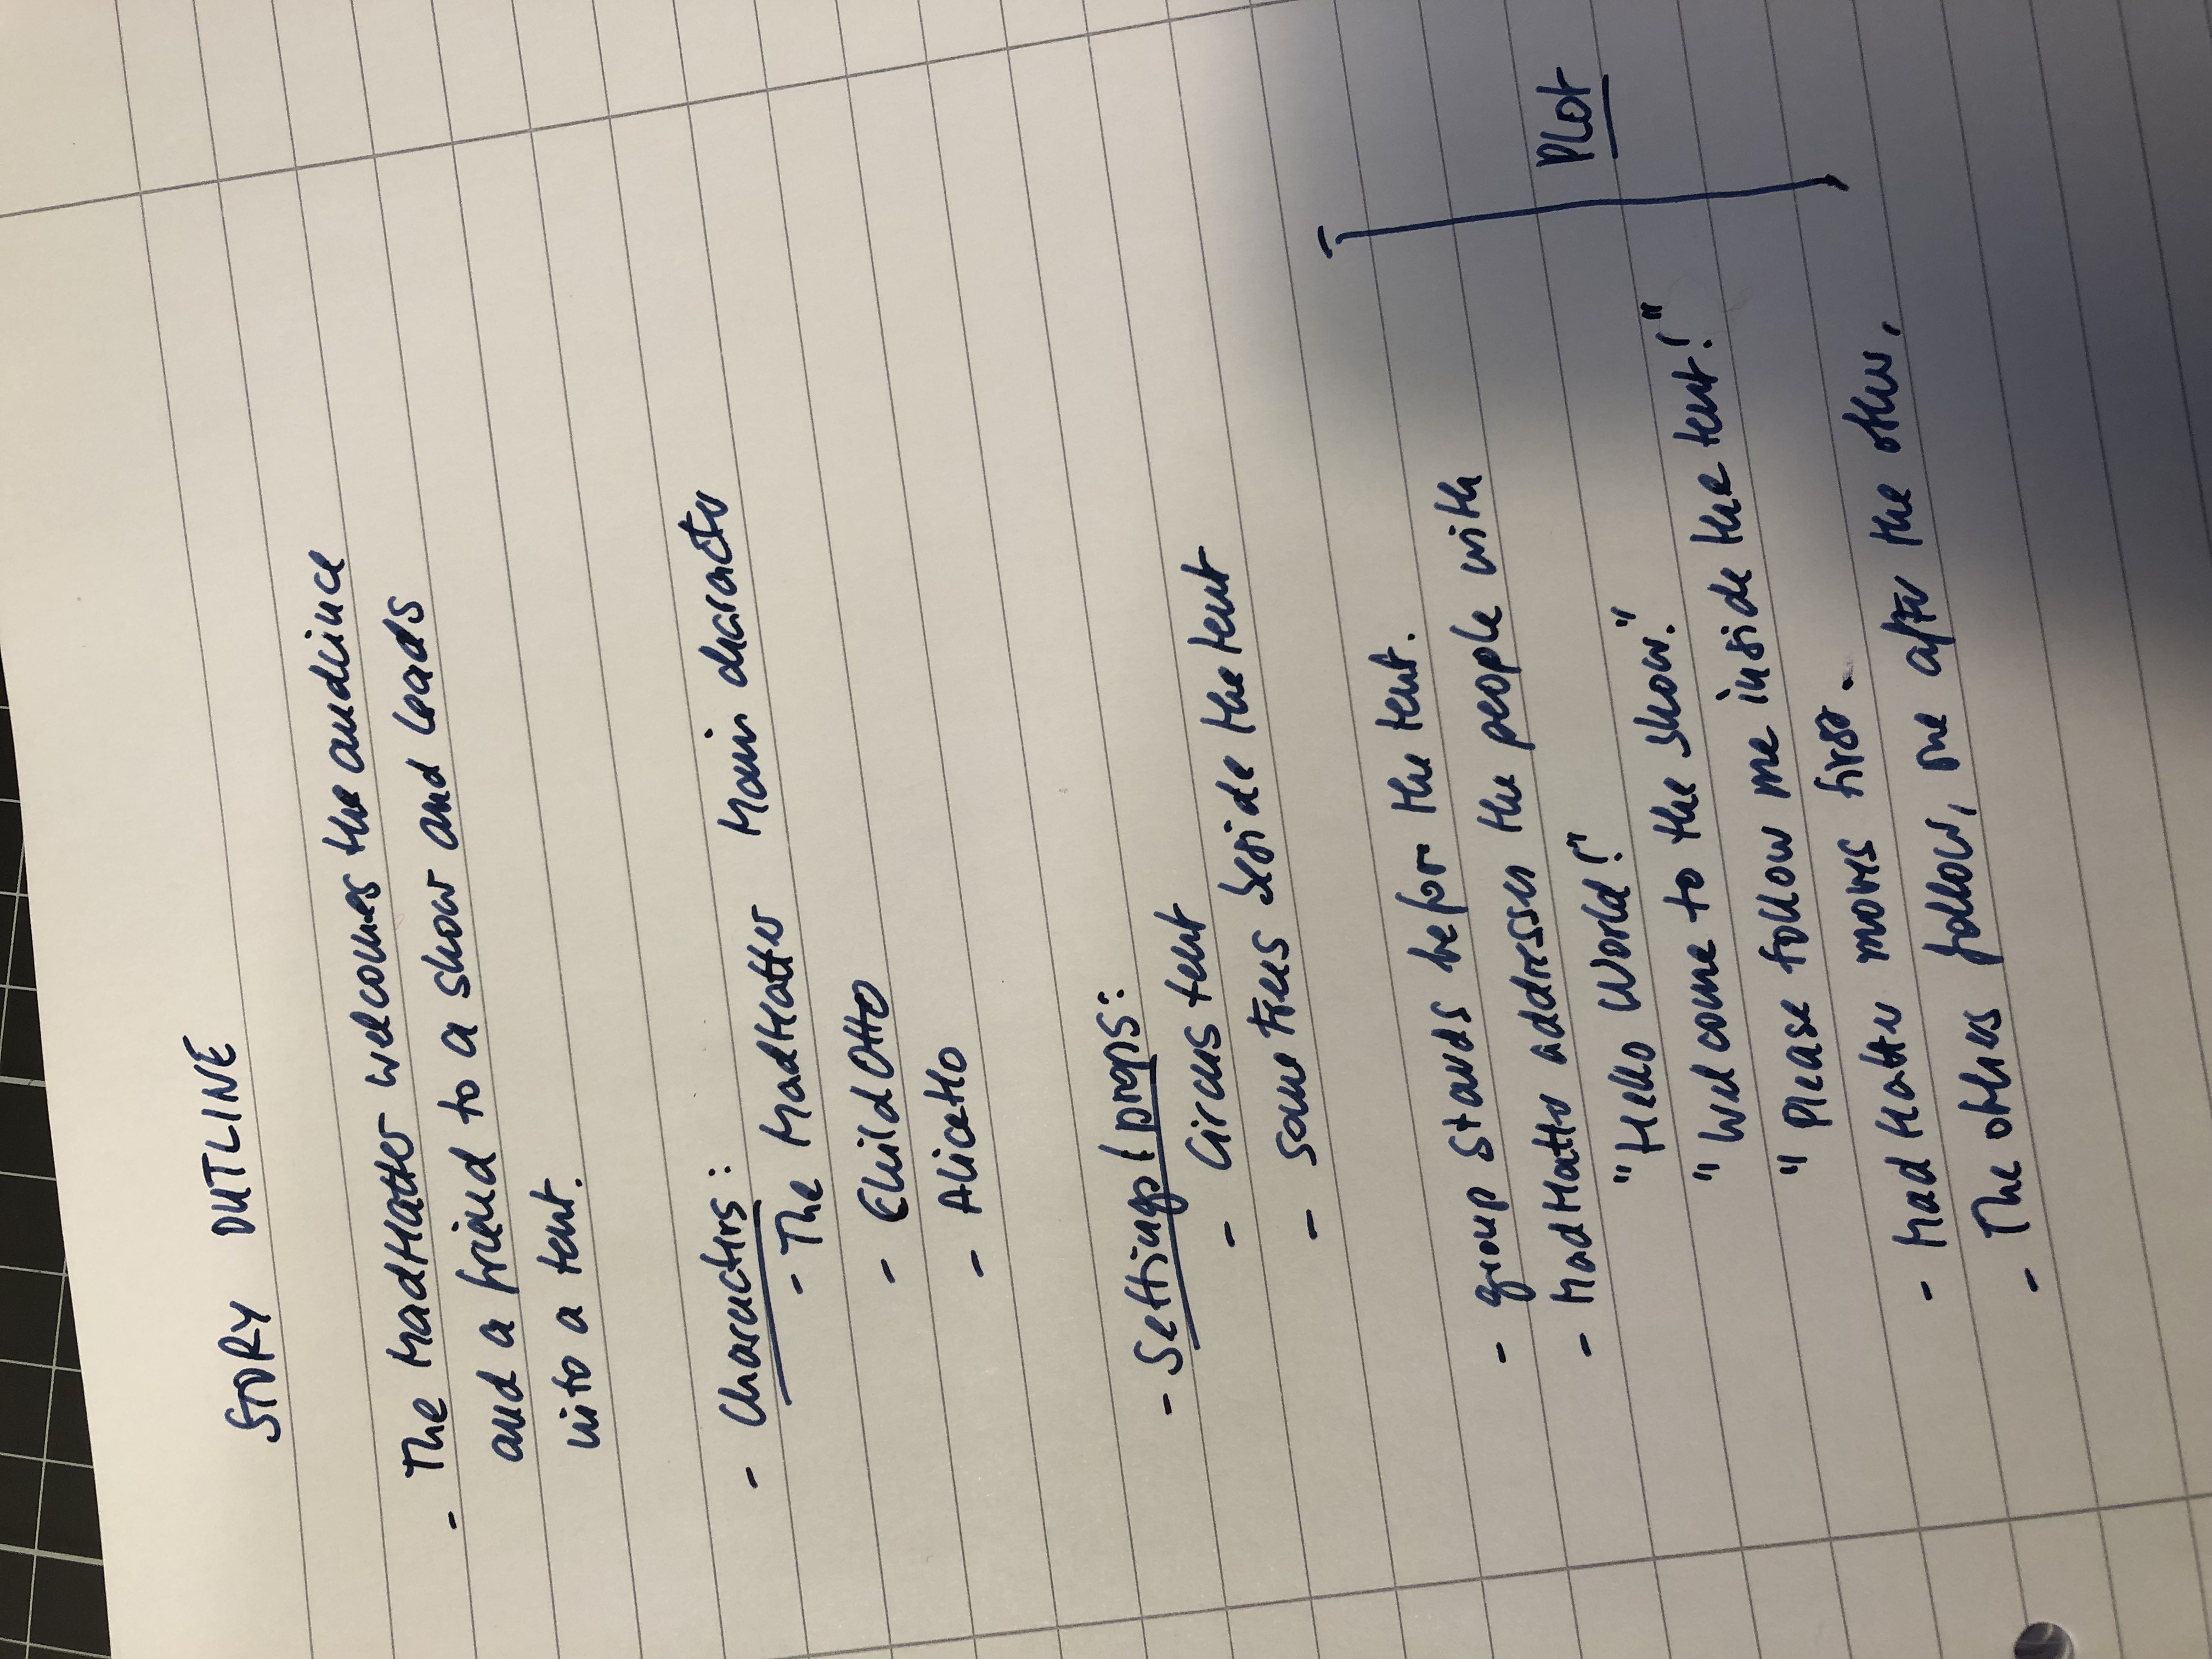 STORY OUTLINE
- The MadHatter welcomes the audience
and a friend to a show and leads
into a tent.
- Characters:
- The MadHatter Main character
- ChildOtto
- Alicetto
- Settings/props:
- Circus tent
- some Trees beside the tent
- group stands before the tent.
- MadHatter addresses the people with
"Hello World!"
"Welcome to the show."
"Please follow me inside the tent!"
- MadHatter moves first.
- The others follow, one after the other.
Plot